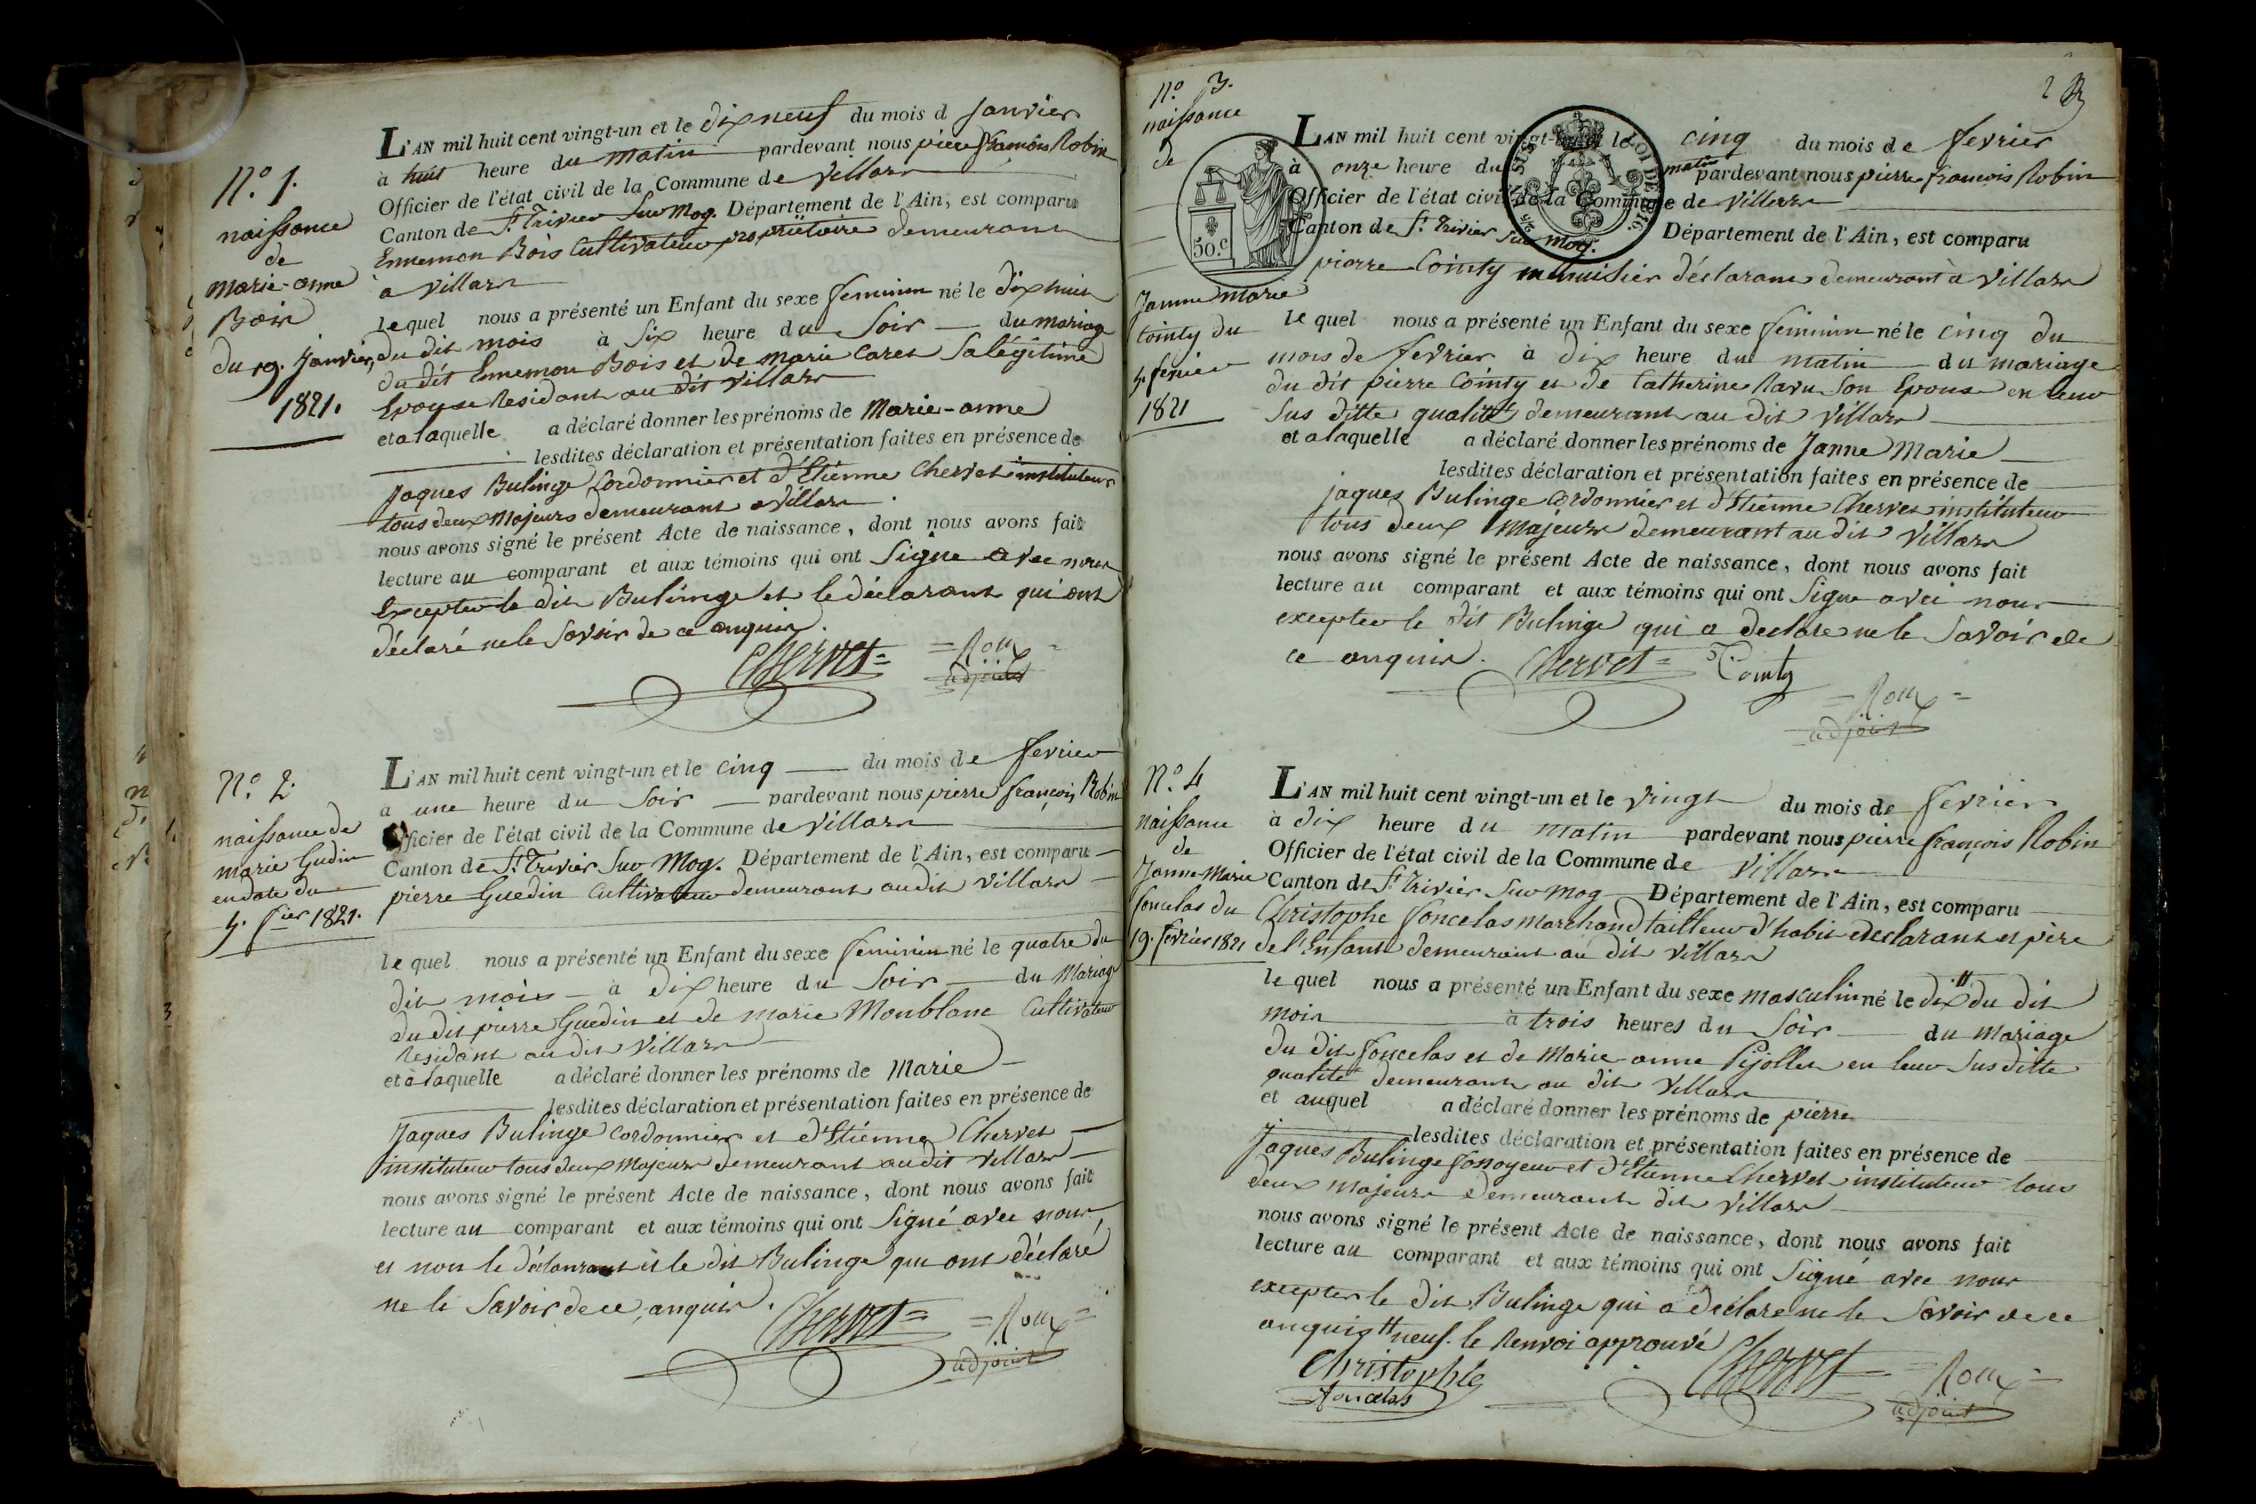 N.o 1.
naissance
de
marie-anne
Bois
du 19. janvier,
1821.
L'AN mil huit cent vingt-un et le dix neuf du mois d janvier
à huit heure du matin pardevant nous pière françois Robin
Officier de l'état civil de la Commune de Villars
Canton de St. Trivier Sur Mog. Département de l'Ain, est comparu
Ennemon Bois Cultivateur propriétaire demeurant
a Villars
lequel nous a présenté un Enfant du sexe feminin né le dix huit
du dit mois à Six heure du Soir du mariage
du dit Ennemon Bois et de marie Caret Sa légitime
Epouse Residant au dit Villars
et a laquelle a déclaré donner les prénoms de Marie-anne
lesdites déclaration et présentation faites en présence de
Jaques Bulinge Cordonnier et d'Etienne Chervet instituteur
tous deux Majeurs demeurant a Villars
nous avons signé le présent Acte de naissance, dont nous avons fait
lecture au comparant et aux témoins qui ont Signe avec nous
Excepter le dit Bulinge et le déclarant qui ont
déclaré ne le Savoir de ce enquis.
Chervet = = Roux =
adjoint
N.o 2.
naissance de
marie Gudin
en date du
5. fier 1821.
L'AN mil huit cent vingt-un et le cinq du mois de fevrier
à une heure du Soir pardevant nous pierre françois Robin
Officier de l'état civil de la Commune de Villars
Canton de St. Trivier Sur Mog. Département de l'Ain, est comparu
pierre Guedin Cultivateur demeurant au dit Villars
le quel nous a présenté un Enfant du sexe feminin né le quatre du
dit mois à dix heure du Soir du Mariage
du dit pierre Guedin et de marie Monblanc Cultivateur
Residant au dit Villars
et à laquelle a déclaré donner les prénoms de Marie
lesdites déclaration et présentation faites en présence de
Jaques Bulinge Cordonnier et d'Etienne Chervet
instituteur tous deux Majeurs demeurant au dit Villars
nous avons signé le présent Acte de naissance, dont nous avons fait
lecture au comparant et aux témoins qui ont Signé avec nous
et non le déclarant et le dit Bulinge qui ont déclaré
ne le Savoir de ce, enquis.
Chervet = = Roux =
adjoint
2
N.o 3.
naissance
de
Janne Marie
Cointy du
5. fevrier
1821
50.c
LOI DE 1816.
L'AN mil huit cent vingt-un et le cinq du mois de fevrier
à onze heure du matin pardevant nous pierre françois Robin
Officier de l'état civil de la Commune de Villars
Canton de St. Trivier Sur Mog. Département de l'Ain, est comparu
pierre Cointy menuisier déclarant demeurant à Villars
le quel nous a présenté un Enfant du sexe feminin né le cinq du
mois de fevrier à dix heure du matin du mariage
du dit pierre Cointy et de Catherine Ravu Son Epouse en leur
Sus ditte qualité demeurant au dit Villars
et a laquelle a déclaré donner les prénoms de Janne Marie
lesdites déclaration et présentation faites en présence de
jaques Bulinge Cordonnier et d'Etienne Chervet instituteur
tous deux Majeurs demeurant au dit Villars
nous avons signé le présent Acte de naissance, dont nous avons fait
lecture au comparant et aux témoins qui ont Signe avec nous
excepter le dit Bulinge qui a declare ne le Savoir de
ce enquis. Chervet = Cointy
= Roux =
adjoint
N.o 4
naissance
de
Janne-Marie
foncelas du
19. fevrier 1821
L'AN mil huit cent vingt-un et le vingt du mois de fevrier
à dix heure du matin pardevant nous pierre françois Robin
Officier de l'état civil de la Commune de Villars
Canton de St. Trivier Sur Mog Département de l'Ain, est comparu
Christophe foncelas Marchand tailleur d'habit declarant et père
de l'Enfant demeurant au dit Villars
le quel nous a présenté un Enfant du sexe masculin né le dix # du dit
mois à trois heures du Soir du Mariage
du dit foncelas et de Marie-anne Pijollet en leur Sus ditte
qualité demeurant au dit Villars
et auquel a déclaré donner les prénoms de pierre
lesdites déclaration et présentation faites en présence de
Jaques Bulinge fossoyeur et d'Etienne Chervet instituteur tous
deux Majeurs demeurant dit Villars
nous avons signé le présent Acte de naissance, dont nous avons fait
lecture au comparant et aux témoins qui ont Signé avec nous
excepter le dit Bulinge qui a declare ne le Savoir de ce
enquis # neuf. le Renvoi approuvé
Christophle
foncelas
Chervet = Roux =
adjoint